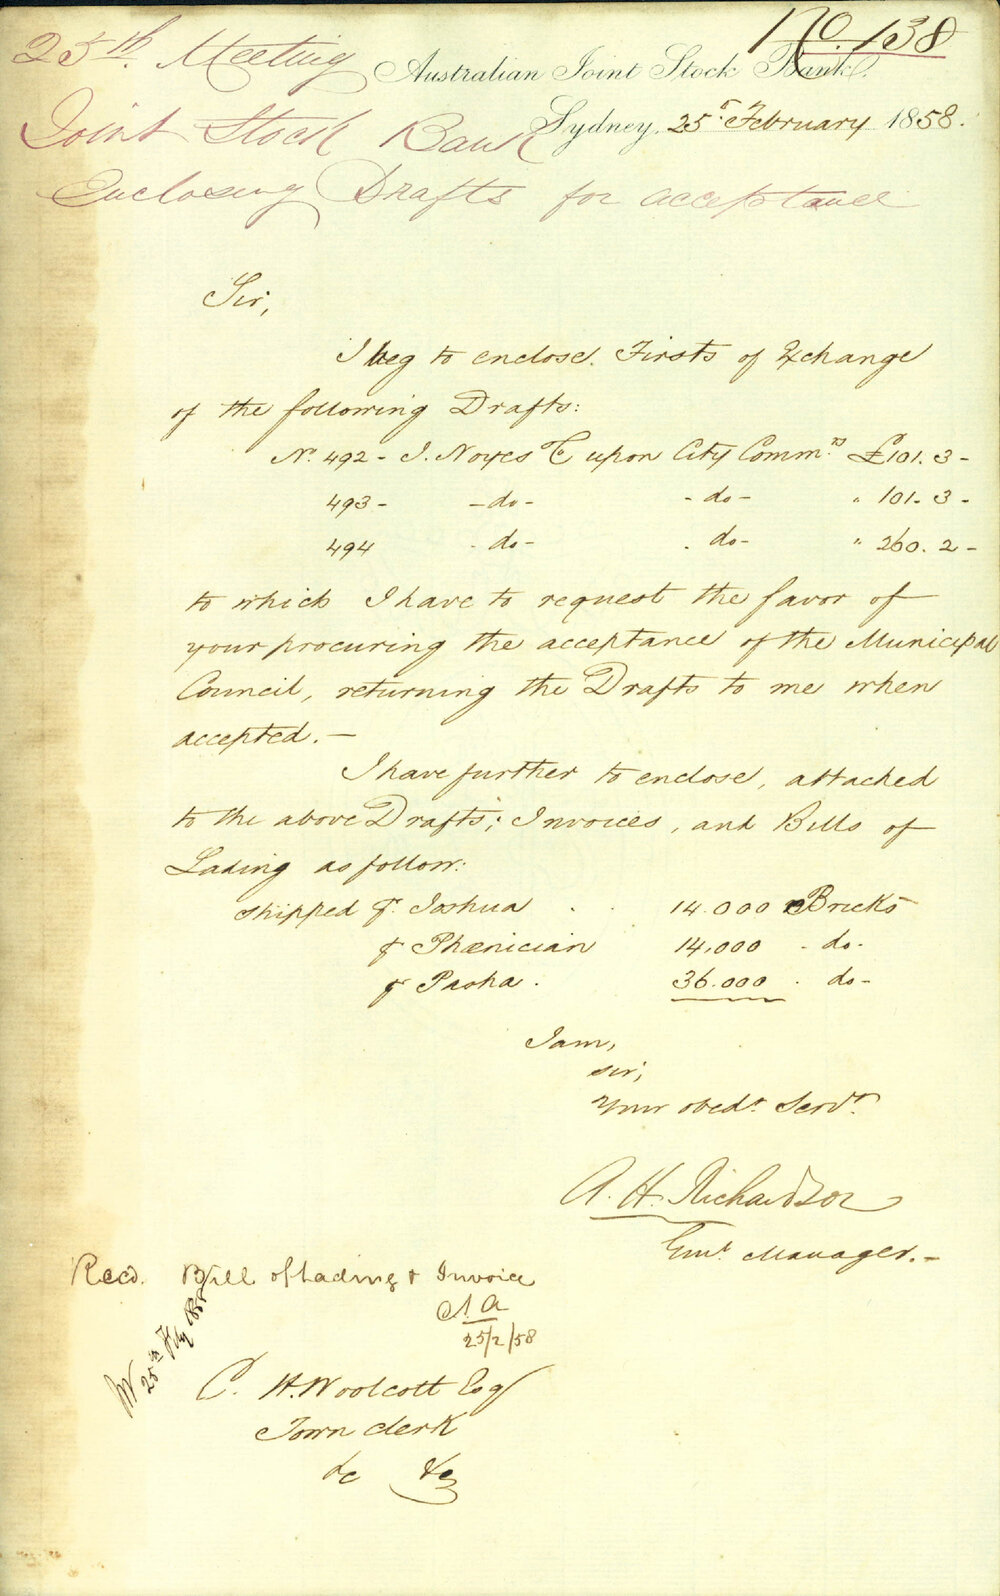 No. 138
25th Meeting
Australian Joint Stock Bank.
Sydney, 25th February 1858.
Joint Stock Bank
Enclosing Drafts for acceptance
Sir,
I beg to enclose Firsts of Exchange
of the following Drafts:
No. 492 - J. Noyes upon City Commrs £101. 3 -
493 - - do - - do - " 101. 3 -
494 - do - . do - " 260. 2 -
to which I have to request the favor of
your procuring the acceptance of the Municipal
Council, returning the Drafts to me when
accepted. —
I have further to enclose, attached
to the above Drafts, Invoices, and Bills of
Lading as follow:
Shipped pr. Joshua . . 14.000 Bricks
pr Phœnician 14,000 - do -
pr Pasha . 36.000 . do -
I am,
Sir,
Your obedt. Servt.
A. H. Richardson
Genl. Manager. -
Recd. Bill of Lading & Invoice
A
25/2/58
25th Feby 1858
C. H. Woolcott Esq
Town Clerk
&c &c